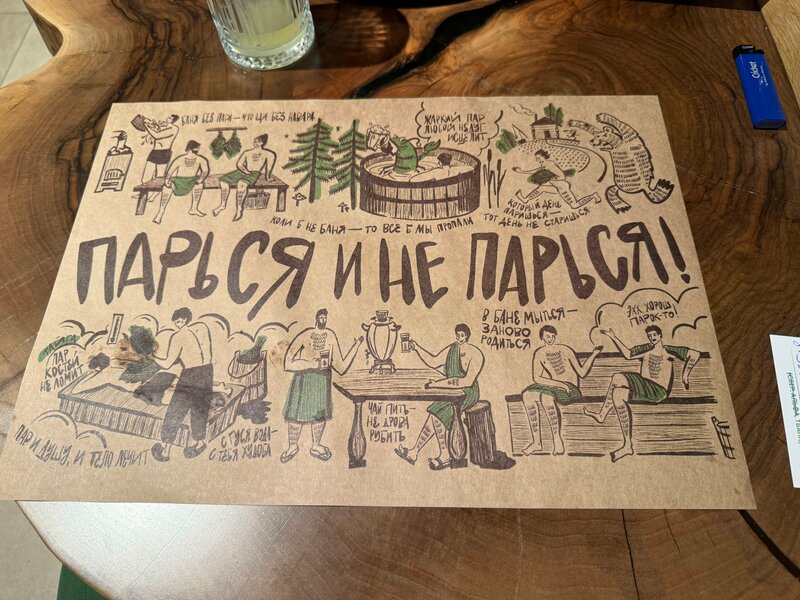 БАНЯ БЕЗ ПАРА — ЧТО ЩИ БЕЗ НАВАРА
ЖАРКИЙ ПАР
ЛЮБОЙ НЕДУГ
ИСЦЕЛИТ
КОЛИ Б НЕ БАНЯ — ТО ВСЁ Б МЫ ПРОПАЛИ
КОТОРЫЙ ДЕНЬ
ПАРИШЬСЯ —
ТОТ ДЕНЬ НЕ СТАРИШЬСЯ
ПАРЬСЯ И НЕ ПАРЬСЯ!
ПАР
КОСТЕЙ
НЕ ЛОМИТ
ПАР И ДУШУ, И ТЕЛО ЛЕЧИТ
С ГУСЯ ВОДА —
С ТЕБЯ ХУДОБА
ЧАЙ ПИТЬ —
НЕ ДРОВА
РУБИТЬ
В БАНЕ МЫТЬСЯ —
ЗАНОВО
РОДИТЬСЯ
ЭХХ ХОРОШ
ПАРОК-ТО!
Cricket